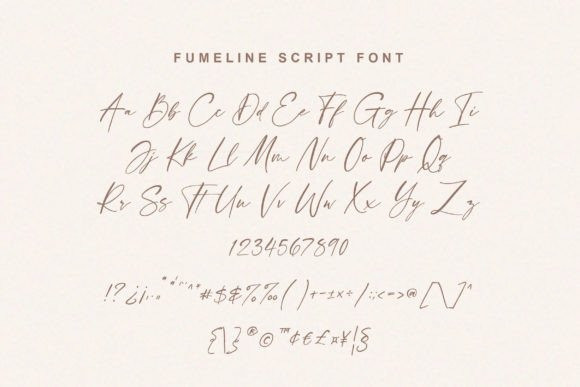 FUMELINE SCRIPT FONT
Aa Bb Cc Dd Ee Ff Gg Hh Ii
Jj Kk Ll Mm Nn Oo Pp Qq
Rr Ss Tt Uu Vv Ww Xx Yy Zz
1234567890
!?¿¡,.·¨"*#$&%‰()+-±×÷/:;<=>@[\]^
{|}®©™¢€£¤¥¦§